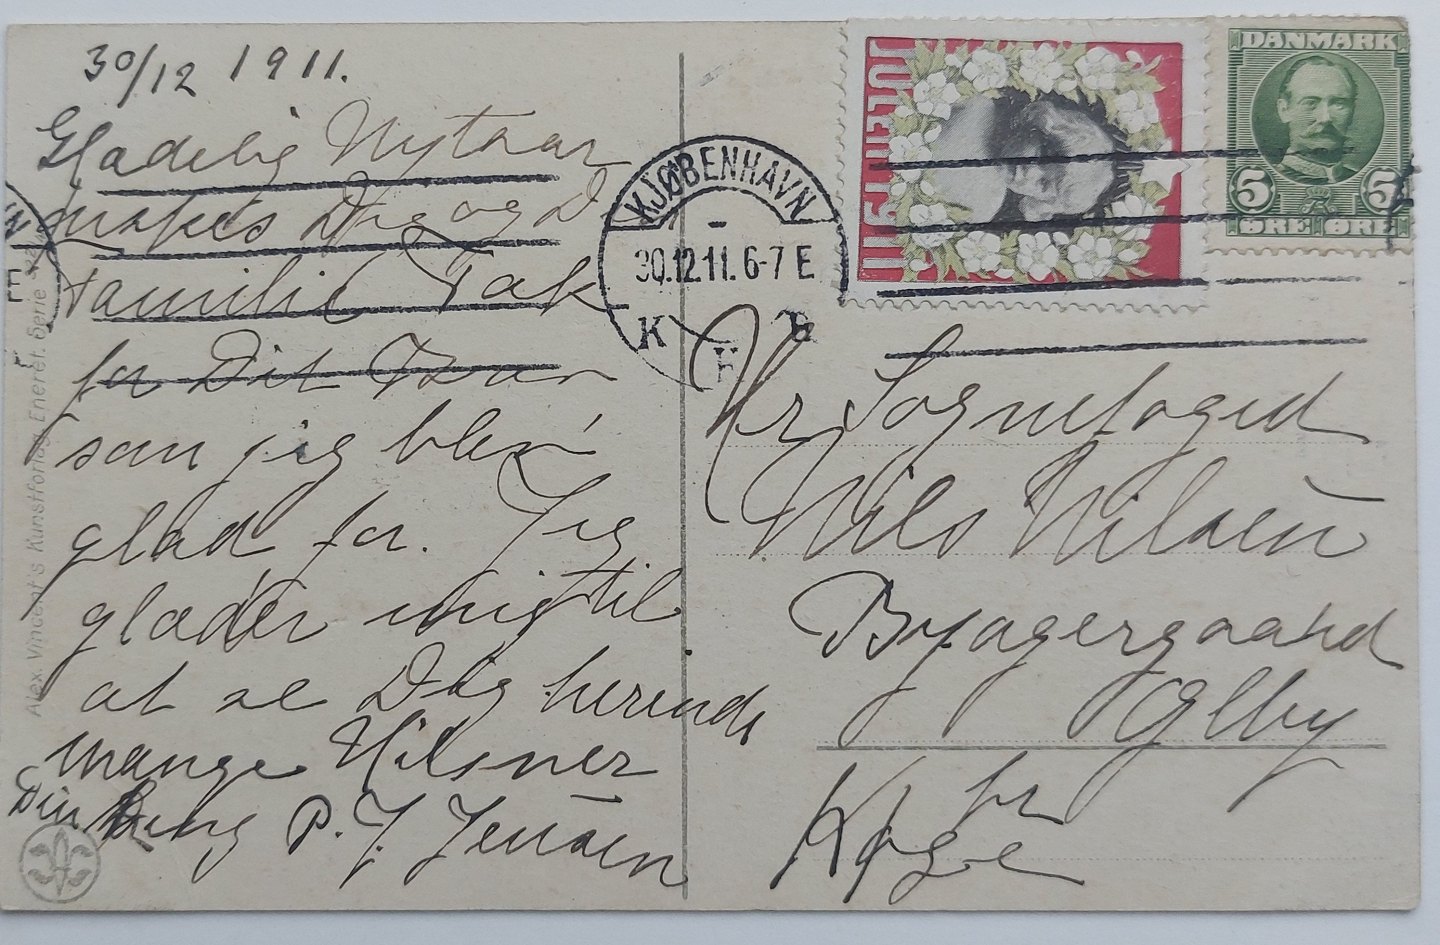 30/12 1911.
Glædelig Nytaar
ønskes Dig og D.
Familie Tak
for Dit Brev
som jeg blev
glad for. Jeg
glæder mig til
at se Dig herinde
mange Hilsner
Din P. J. Jensen
Alex Vincent's Kunstforlag, Eneret. Serie
KJØBENHAVN
30.12.11. 6-7 E
K B
JULEN 1911
DANMARK
5 5
ØRE ØRE
Hr Sognefoged
Nils Nilsen
Byagergaard
Ølby
pr
Kjøge